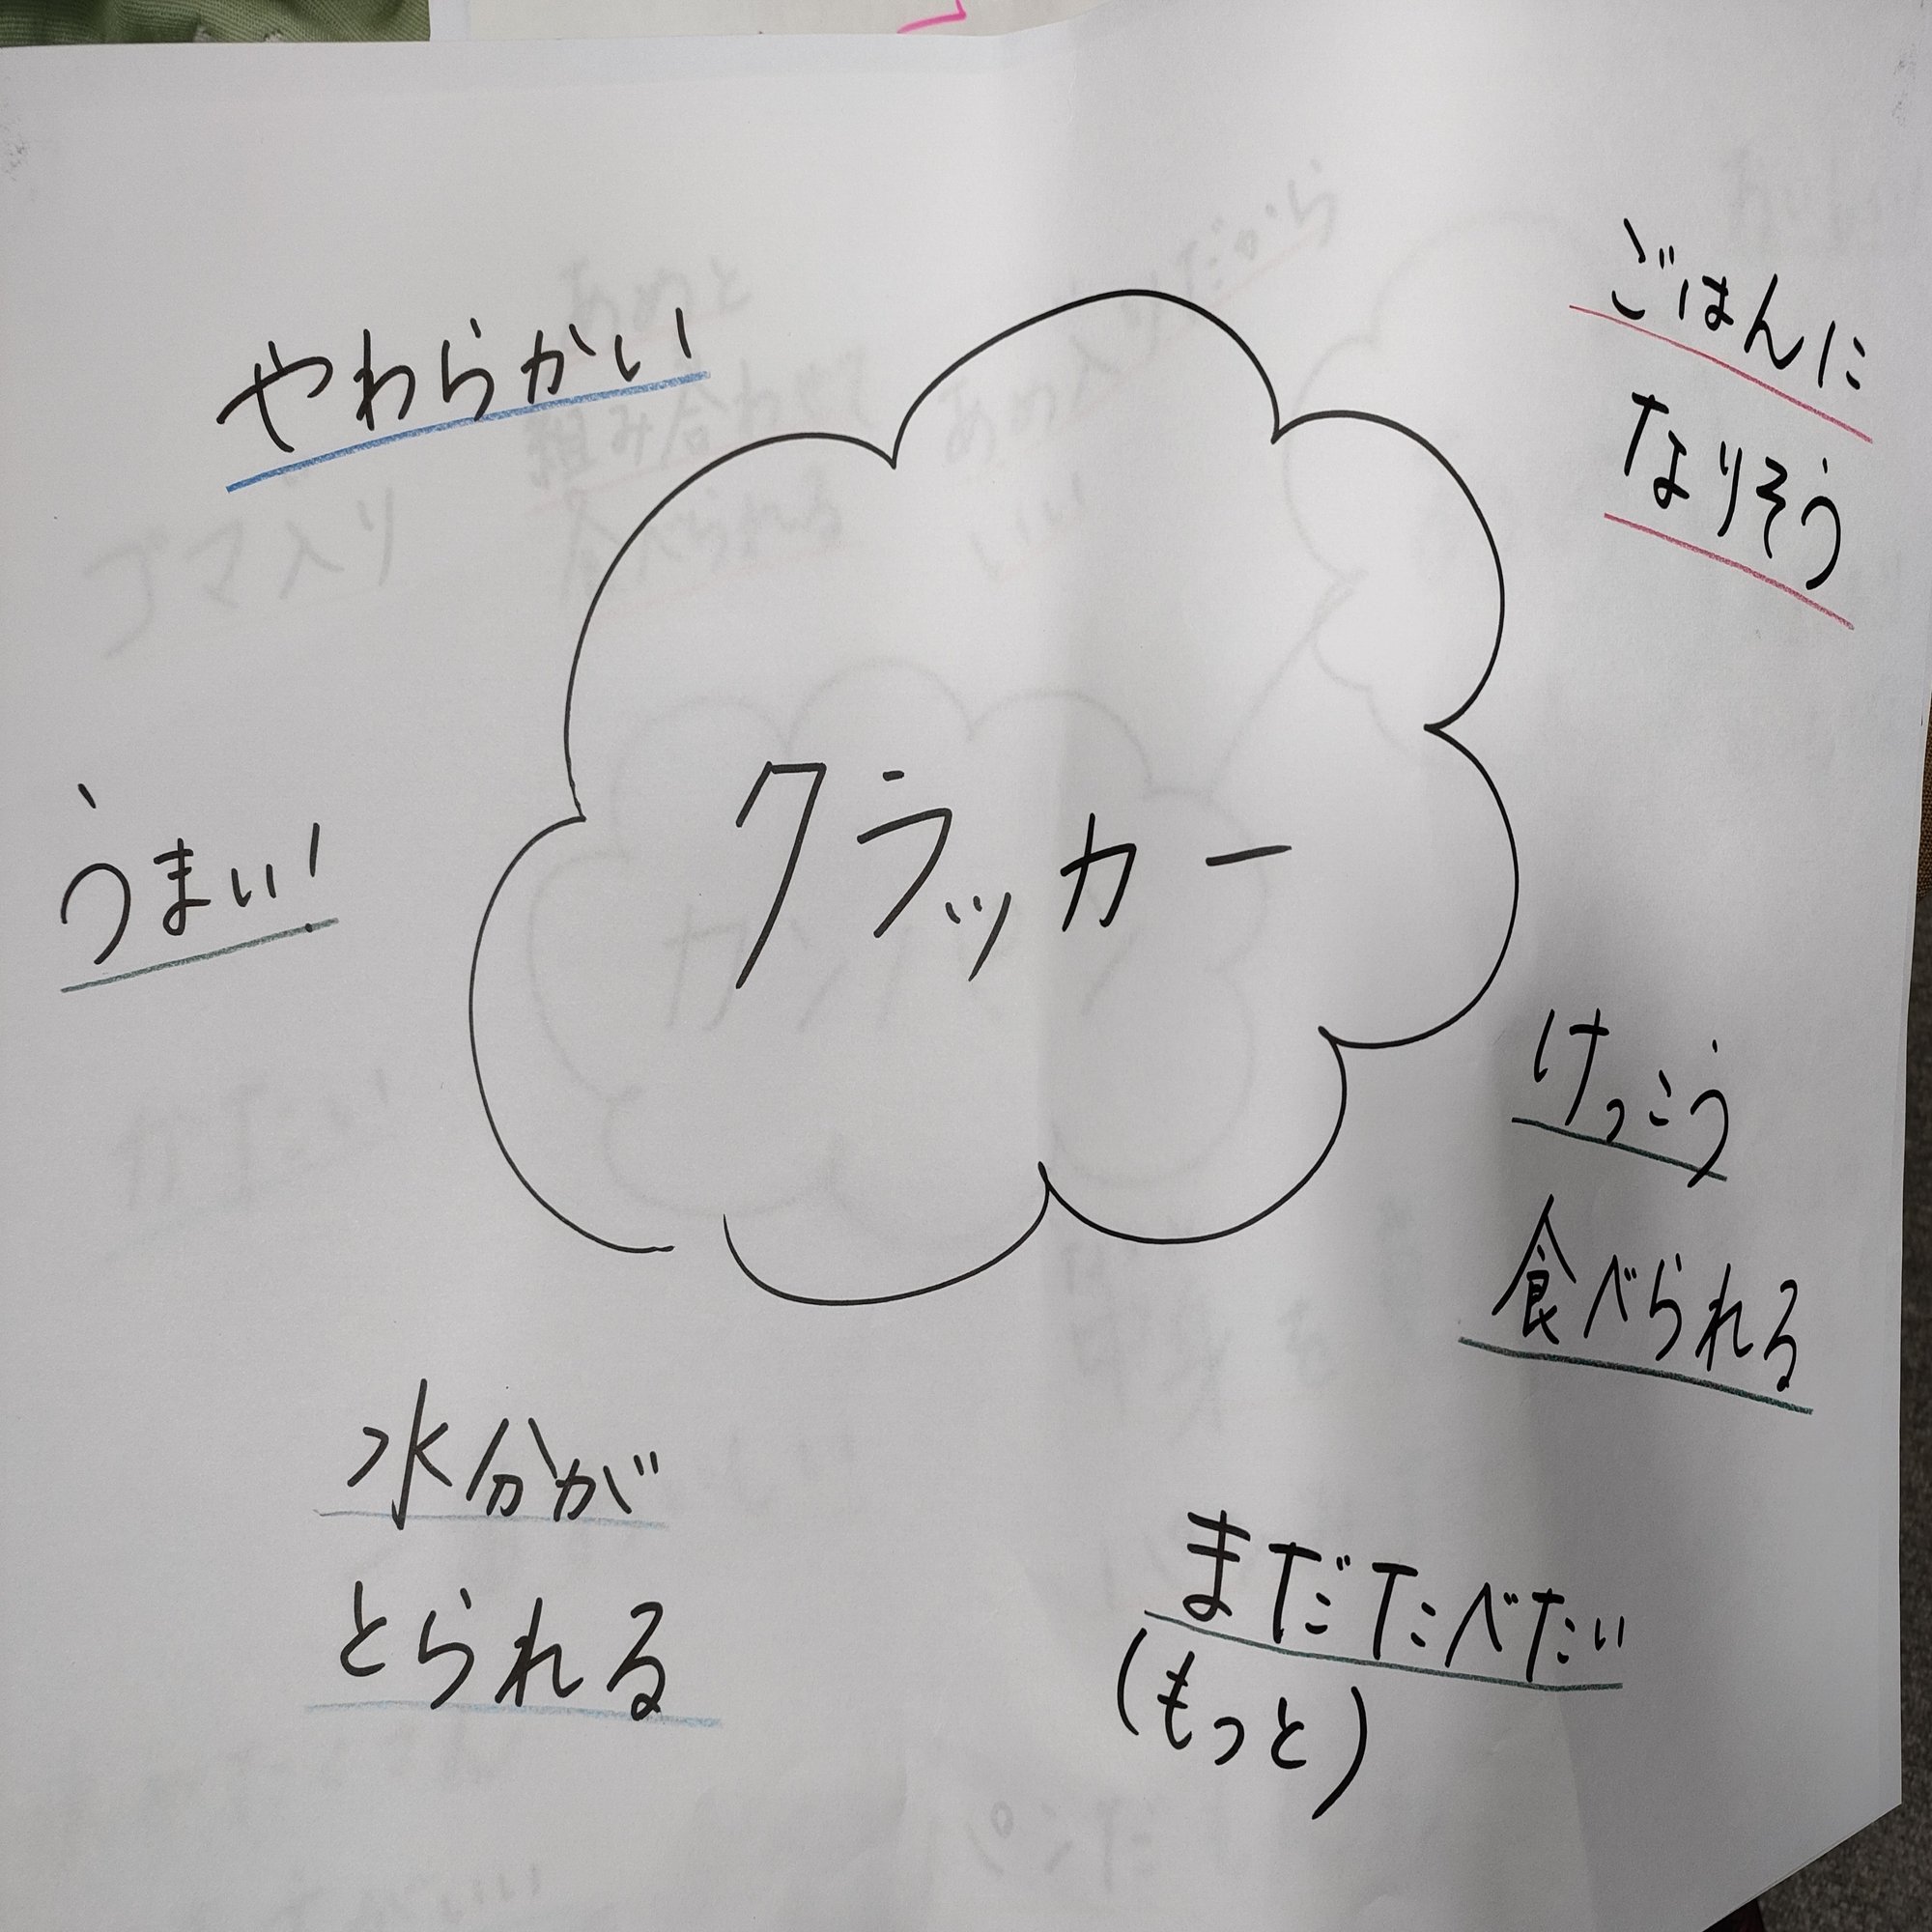 やわらかい
ごはんに
なりそう
クラッカー
うまい!
けっこう
食べられる
水分が
とられる
まだたべたい
(もっと)